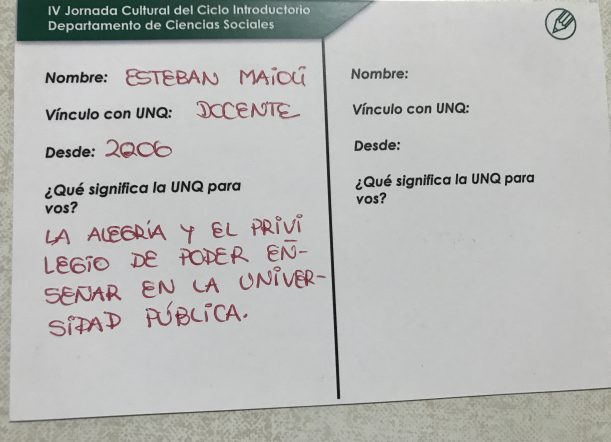 IV Jornada Cultural del Ciclo Introductorio
Departamento de Ciencias Sociales
Nombre: ESTEBAN MAiOLi
Vínculo con UNQ: DOCENTE
Desde: 2006
¿Qué significa la UNQ para
vos?
LA ALEGRÍA Y EL PRiVi
LEGiO DE PODER EÑ-
SEÑAR EN LA UNiVER-
SiDAD PÚBLiCA.
Nombre:
Vínculo con UNQ:
Desde:
¿Qué significa la UNQ para
vos?